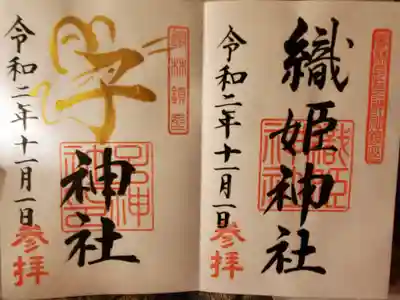 織姫神社
令和二年十一月一日
参拝
織姫神社
子神社
令和二年十一月一日
参拝